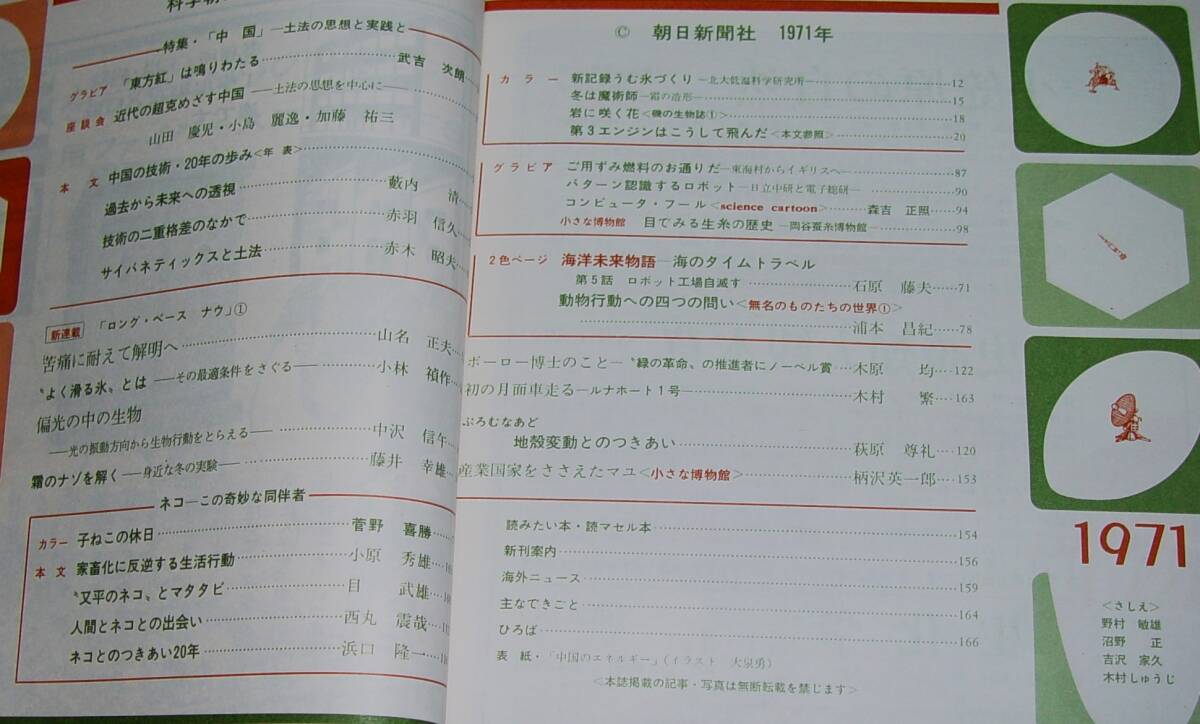 科学朝
特集・「中国」―土法の思想と実践と
グラビア 「東方紅」は鳴りわたる 武吉 次朗
座談会 近代の超克めざす中国 ―土法の思想を中心に―
山田 慶児・小島 麗逸・加藤 祐三
本文 中国の技術・20年の歩み<年表>
過去から未来への透視 藪内 清
技術の二重格差のなかで 赤羽 信久
サイバネティックスと土法 赤木 昭夫
新連載 「ロング・ペース ナウ」①
苦痛に耐えて解明へ 山名 正夫
〝よく滑る氷〟とは ―その最適条件をさぐる― 小林 禎作
偏光の中の生物
―光の振動方向から生物行動をとらえる― 中沢 信午
霜のナゾを解く ―身近な冬の実験― 藤井 幸雄
ネコ―この奇妙な同伴者
カラー 子ねこの休日 菅野 喜勝
本文 家畜化に反逆する生活行動 小原 秀雄
〝又平のネコ〟とマタタビ 目 武雄
人間とネコとの出会い 西丸 震哉
ネコとのつきあい20年 浜口 隆一
© 朝日新聞社 1971年
カラー 新記録うむ氷づくり ―北大低温科学研究所― 12
冬は魔術師 ―霜の造形― 15
岩に咲く花<磯の生物誌①> 18
第3エンジンはこうして飛んだ<本文参照> 20
グラビア ご用ずみ燃料のお通りだ―東海村からイギリスへ― 87
パターン認識するロボット―日立中研と電子総研― 90
コンピュータ・フール<science cartoon> 森吉 正照 94
小さな博物館 目でみる生糸の歴史―岡谷蚕糸博物館― 98
2色ページ 海洋未来物語―海のタイムトラベル
第5話 ロボット工場自滅す 石原 藤夫 71
動物行動への四つの問い<無名のものたちの世界①>
浦本 昌紀 78
ボーロー博士のこと―〝緑の革命〟の推進者にノーベル賞 木原 均 122
初の月面車走る―ルナホート1号 木村 繁 163
ぷろむなあど
地殻変動とのつきあい 萩原 尊礼 120
産業国家をささえたマユ<小さな博物館> 柄沢英一郎 153
読みたい本・読マセル本 154
新刊案内 156
海外ニュース 159
主なできごと 164
ひろば 166
表紙・「中国のエネルギー」(イラスト 大泉勇)
<本誌掲載の記事・写真は無断転載を禁じます>
1971
<さしえ>
野村 敏雄
沼野 正
吉沢 家久
木村しゅうじ